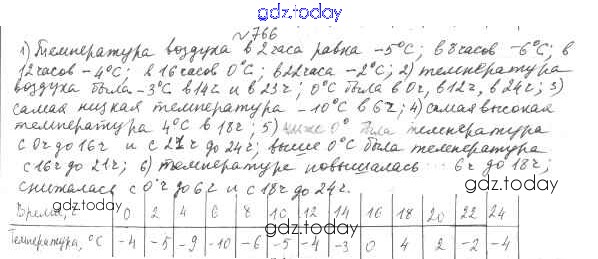 gdz.today
№766
1) Температура воздуха в 2 часа равна -5°С; в 8 часов -6°С; в
12 часов -4°С; в 16 часов 0°С; в 22 часа -2°С; 2) температура
воздуха была -3°С в 14ч и в 23ч; 0°С была в 0ч, в 12ч, в 24ч; 3)
самая низкая температура -10°С в 6ч; 4) самая высокая
температура 4°С в 18ч; 5) ниже 0° была температура
с 0ч до 16ч и с 21ч до 24ч; выше 0°С была температура
с 16ч до 21ч; 6) температура повышалась 6ч до 18ч;
снижалась с 0ч до 6ч и с 18ч до 24ч.
gdz.today
Время, ч 0 2 4 6 8 10 12 14 16 18 20 22 24
Температура, °С -4 -5 -9 -10 -6 -5 -4 -3 0 4 2 -2 -4
gdz.today